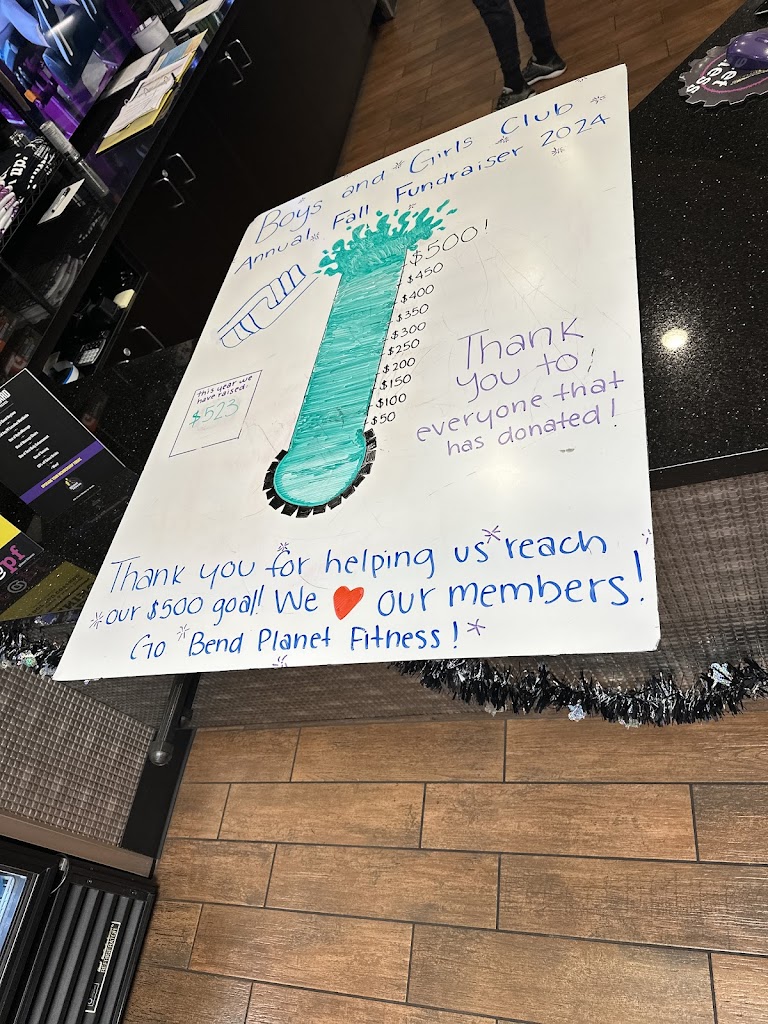 Boys and Girls Club
Annual Fall Fundraiser 2024
$500!
$450
$400
$350
$300
$250
$200
$150
$100
$50
this year we
have raised:
$523
Thank
you to
everyone that
has donated!
Thank you for helping us reach
our $500 goal! We ❤ our members!
Go Bend Planet Fitness!
pf
REFRIGERATOR